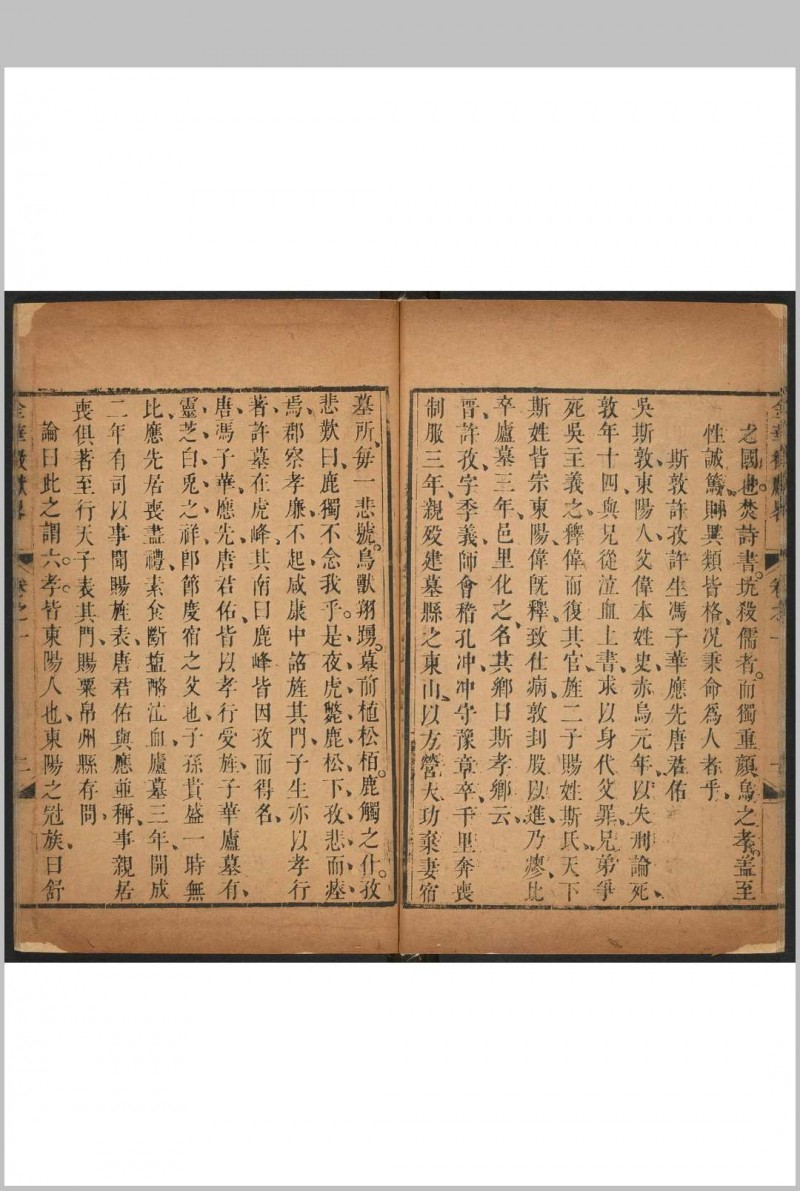 之國也焚詩書坑殺儒者而獨重顏烏之孝蓋至
性誠篤則異類皆格况秉命爲人者乎
斯敦許孜許生馮子華應先唐君佑
吳斯敦東陽人父偉本姓史赤烏元年以失刑論死
敦年十四與兄從泣血上書求以身代父罪兄弟爭
死吳主義之釋偉而復其官旌二子賜姓斯氏天下
斯姓皆宗東陽偉旣釋致仕病敦刲股以進乃瘳比
卒廬墓三年邑里化之名其鄉曰斯孝鄉云
晋許孜字季義師會稽孔冲冲守豫章卒千里奔喪
制服三年親歿建墓縣之東山以方營大功棄妻宿
墓所每一悲號鳥獸翔踴墓前植松栢鹿觸之仆孜
悲歎曰鹿獨不念我乎是夜虎斃鹿松下孜悲而瘞
焉郡察孝廉不起咸康中詔旌其門子生亦以孝行
著許墓在虎峰其南曰鹿峰皆因孜而得名
唐馮子華應先唐君佑皆以孝行受旌子華廬墓有
靈芝白兎之祥卽節度宿之父也子孫貴盛一時無
比應先居喪盡禮素食斷塩酪泣血廬墓三年開成
二年有司以事聞賜旌表唐君佑與應並稱事親居
喪俱著至行天子表其門賜粟帛州縣存問
論曰此之謂六孝皆東陽人也東陽之冠族曰舒
卷之一
二